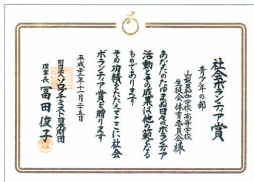 社会ボランティア賞
青少年の部
山梨英和中学校高等学校
生徒会 体育委員会 様
あなたのたゆまぬ日々のボランティア
活動とその成果は他の範となる
ものであります
その功績をたたえここに社会
ボランティア賞を贈ります
平成二十三年十一月二十六日
財団法人 ソロプチミスト日本財団
理事長 冨田俊子